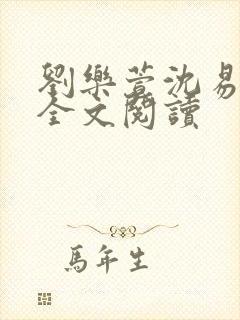 劉樂萱沈易
全文閱讀
馬年生